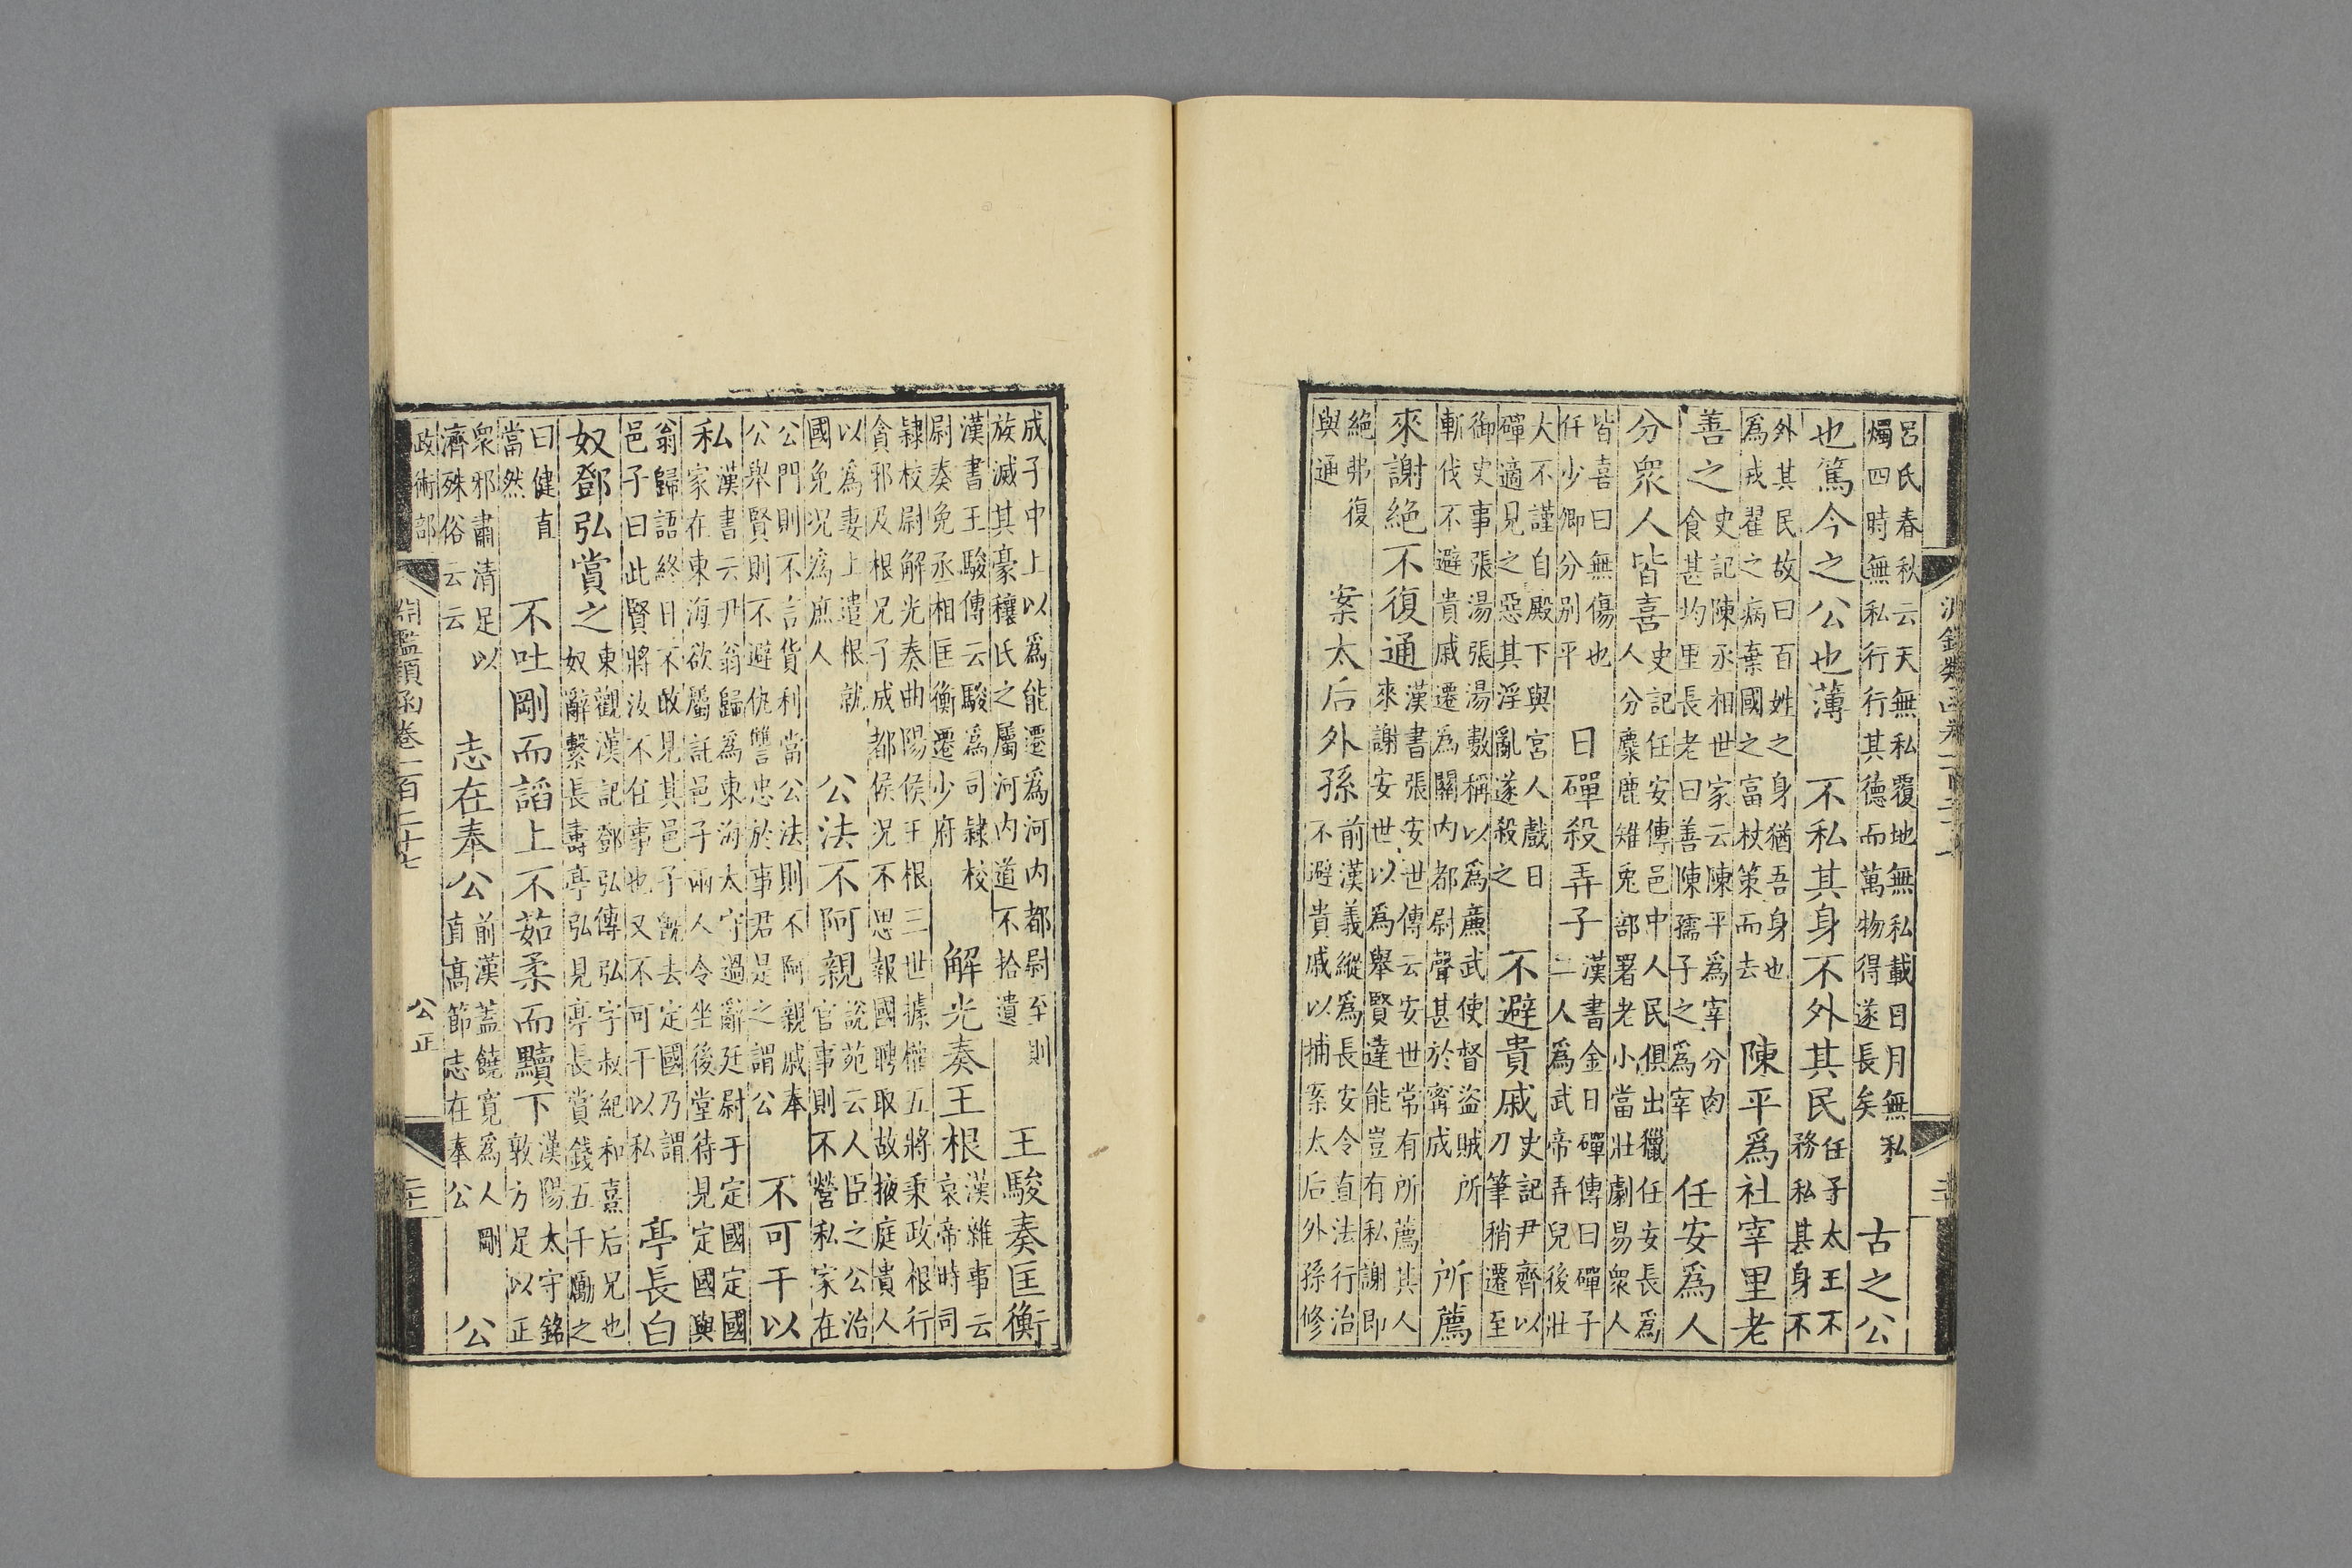 呂氏春秋云天無私覆地無私載日月無私
燭四時無私行行其德而萬物得遂長矣
古之公
也篤今之公也薄　不私其身不外其民
任子太王不
務私甚身不
外其民故曰百姓之身猶吾身也
爲戎翟之病棄國之富杖策而去
陳平爲社宰里老
善之
史記陳丞相世家云陳平爲宰分肉
食甚均里長老曰善陳孺子之爲宰
任安爲人
分衆人皆喜
史記任安傳邑中人民俱出獵任安長爲
人分麋鹿雉兎部署老小當壯劇易衆人
皆喜曰無傷也
任少卿分別平
日磾殺弄子
漢書金日磾傳曰磾子
二人爲武帝弄兒後壯
大不謹自殿下與宮人戲日
磾適見之惡其淫亂遂殺之
不避貴戚
史記尹齊以
刀筆稍遷至
御史事張湯張湯數稱以爲廉武使督盜賊所
斬伐不避貴戚遷爲關内都尉聲甚於甯成
所薦
來謝絶不復通
漢書張安世傳云安世常有所薦其人
來謝安世以爲舉賢達能豈有私謝即
絶弗復
與通
案太后外孫
前漢義縱爲長安令直法行治
不避貴戚以捕案太后外孫修
成子中上以爲能遷爲河内都尉至則
族滅其豪穰氏之屬河内道不拾遺
王駿奏匡衡
漢書王駿傳云駿爲司隷校
尉奏免丞相匡衡遷少府
解光奏王根
漢雜事云
哀帝時司
隷校尉解光奏曲陽侯王根三世據權五將秉政根行
貪邪及根兄子成都侯况不思報國聘取故掖庭貴人
以爲妻上遣根就
國免况爲庶人
公法不阿親
說苑云人臣之公治
官事則不營私家在
公門則不言貨利當公法則不阿親戚奉
公舉賢則不避仇讐忠於事君是之謂公
不可干以
私
漢書云尹翁歸爲東海太守過辭廷尉于定國定國
家在東海欲屬託邑子兩人令坐後堂待見定國與
翁歸語終日不敢見其邑子既去定國乃謂
邑子曰此賢將汝不任事也又不可干以私
亭長白
奴鄧弘賞之
東觀漢記鄧弘傳弘字叔紀和熹后兄也
奴辭繫長壽亭弘見亭長賞錢五千勵之
曰健直
當然
不吐剛而謟上不茹柔而黷下
漢陽太守銘
敦方足以正
衆邪肅清足以
濟殊俗云云
志在奉公
前漢蓋饒寬爲人剛
直高節志在奉公
公
政術部
淵鑑類函卷一百二十七
公正